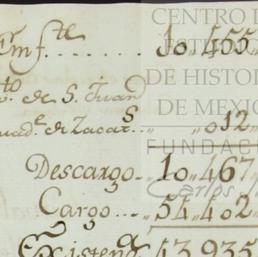 Em f.te ........ 10,455
to. de S. Juan
uad.e de Zacar.s ,, 012,,
Descargo.. 10,467
Cargo... 54,402
Existen.a 43,935
CENTRO D
DE HISTO
DE MEXI
FUNDAC
Carlos S